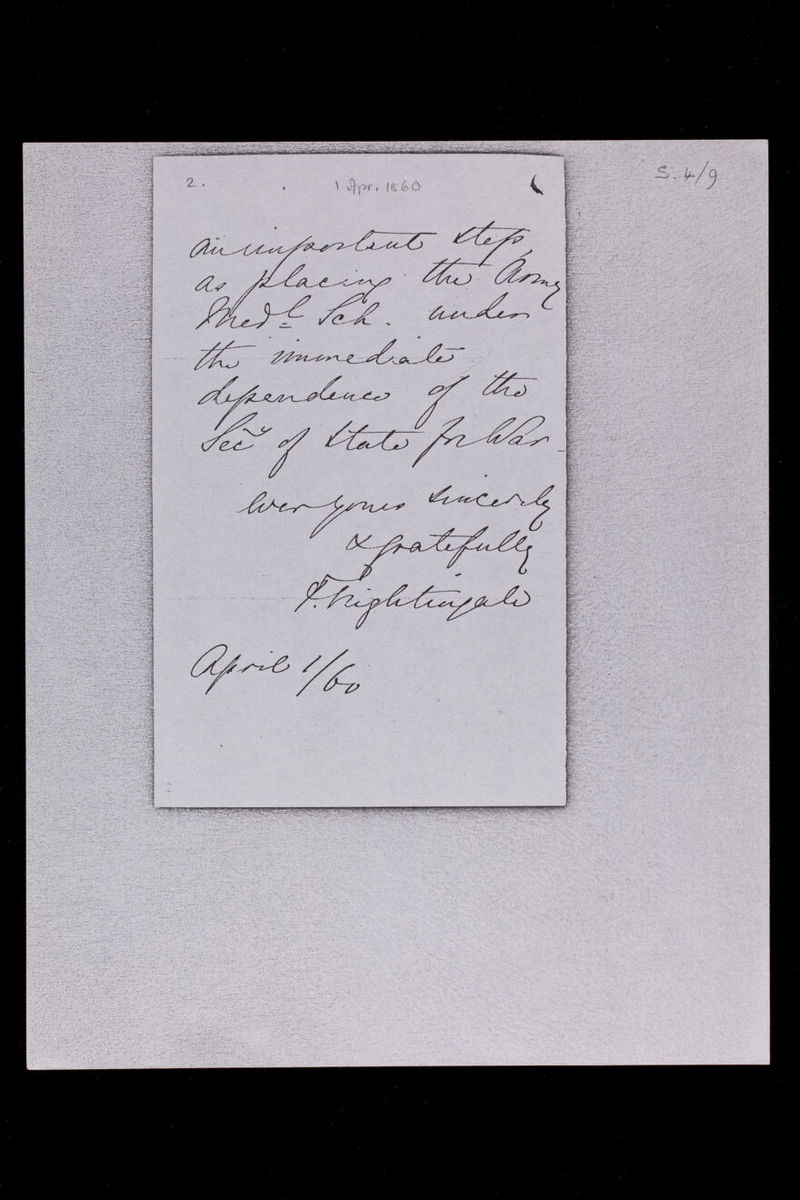 S. 4/9
2. 1 Apr. 1860
an important step,
as placing the Army
Medl Sch. under
the immediate
dependence of the
Secy of State for War.
ever yours sincerely
& gratefully
F. Nightingale
April 1/60